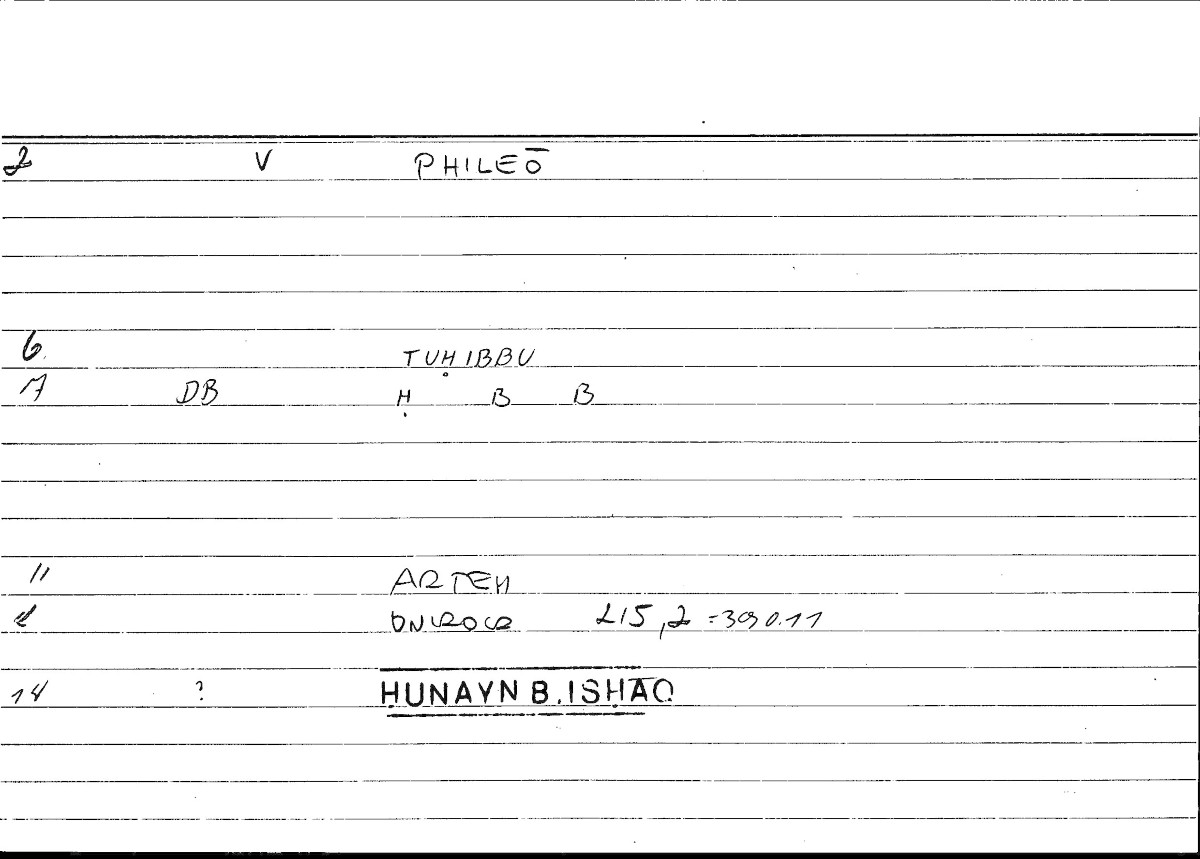 2 V PHILEŌ
6 TUḤIBBU
7 DB Ḥ B B
11 ARTEM
ONIROCR 215,2 = 390.11
14 ? ḤUNAYN B. ISḤĀQ